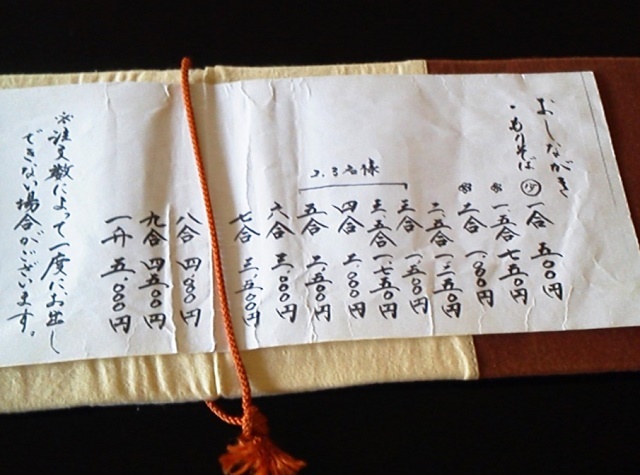 おしながき
・もりそば
一合 五〇〇円
一.五合 七五〇円
二合 一.〇〇〇円
二.五合 一.二五〇円
三合 一.五〇〇円
三.五合 一.七五〇円
四合 二.〇〇〇円
五合 二.五〇〇円
2.3名様
六合 三.〇〇〇円
七合 三.五〇〇円
八合 四.〇〇〇円
九合 四.五〇〇円
一升 五.〇〇〇円
※注文数によって一度にお出し
できない場合がございます。